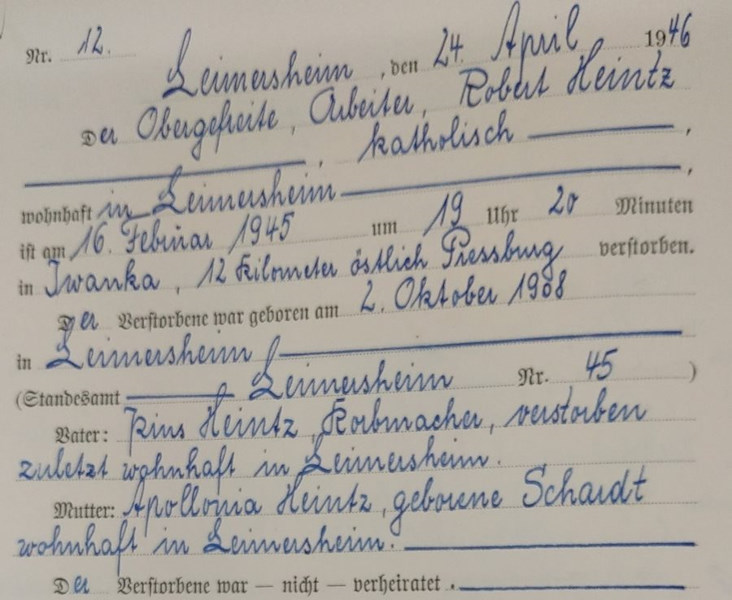 Nr. 12.
Leimersheim, den 24. April 1946
Der Obergefreite, Arbeiter, Robert Heintz
, katholisch ,
wohnhaft in Leimersheim ,
ist am 16. Februar 1945 um 19 Uhr 20 Minuten
in Iwanka, 12 Kilometer östlich Pressburg verstorben.
Der Verstorbene war geboren am 2. Oktober 1908
in Leimersheim
(Standesamt Leimersheim Nr. 45 )
Vater: Pius Heintz, Korbmacher, verstorben
zuletzt wohnhaft in Leimersheim.
Mutter: Apollonia Heintz, geborene Schardt
wohnhaft in Leimersheim.
Der Verstorbene war — nicht — verheiratet.